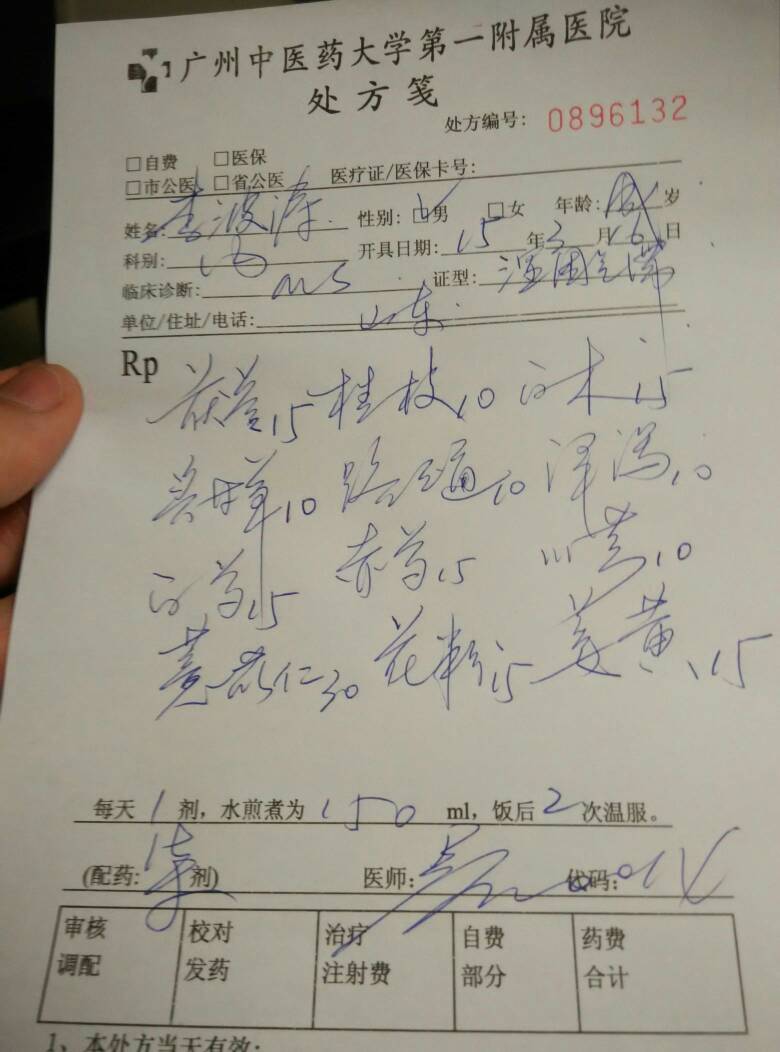 广州中医药大学第一附属医院
处方笺
处方编号： 0896132
□自费 □医保
□市公医 □省公医 医疗证/医保卡号：
姓名： 李波涛 性别：□男 □女 年龄： 岁
科别： 内 开具日期： 15 年 3 月 16 日
临床诊断： 证型： 湿困气滞
单位/住址/电话： 山东
Rp
茯苓15 桂枝10 白术15
10 路路通10 泽泻10
白芍15 赤芍15 川芎10
薏苡仁30 花粉15 姜黄15
每天 1 剂，水煎煮为 150 ml，饭后 2 次温服。
(配药： 剂) 医师： 代码：
审核 校对 治疗 自费 药费
调配 发药 注射费 部分 合计
1、本处方当天有效；